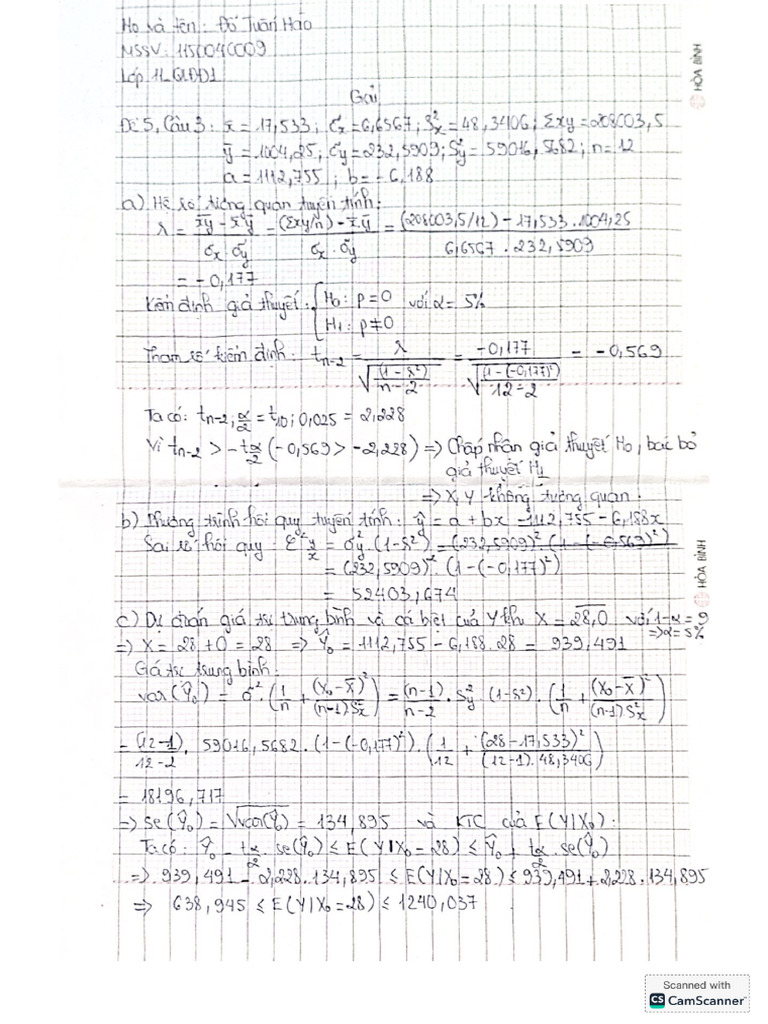 Họ và tên: Đỗ Tuấn Hào
MSSV: 1150040009
Lớp 11_QLĐĐ1
Giải
Đề 5, Câu 3: x̄ = 17,533; σx = 6,6567; S²x = 48,3406; Σxy = 208003,5
ȳ = 1004,25; σy = 232,5909; S²y = 59016,5682; n = 12
a = 1112,755; b = -6,188
a) Hệ số tương quan tuyến tính:
r = (xy̅ - x̄.ȳ)/(σx.σy) = ((Σxy/n) - x̄.ȳ)/(σx.σy) = ((208003,5/12) - 17,533.1004,25)/(6,6567.232,5909)
= -0,177
Kiểm định giả thuyết: { H0: ρ = 0 với α = 5%
H1: ρ ≠ 0
Tham số kiểm định: t n-2 = r/√((1-r²)/(n-2)) = -0,177/√((1-(-0,177)²)/(12-2)) = -0,569
Ta có: t n-2; α/2 = t10; 0,025 = 2,228
Vì t n-2 > -t α/2 (-0,569 > -2,228) => Chấp nhận giả thuyết H0, bác bỏ
giả thuyết H1
=> X, Y không tương quan.
b) Phương trình hồi quy tuyến tính: ŷ = a + bx = 1112,755 - 6,188x
Sai số hồi quy: ε² y/x = σ²y.(1-r²) = (232,5909)².(1-(-0,569)²)
= (232,5909)².(1-(-0,177)²)
= 52403,674
c) Dự đoán giá trị trung bình và cá biệt của Y khi X = 28,0 với 1-α = 9
=> X = 28 + 0 = 28 => Ŷ0 = 1112,755 - 6,188.28 = 939,491 => α = 5%
Giá trị trung bình:
var(Ŷ0) = σ².(1/n + (X0-X̄)²/((n-1).S²x)) = (n-1)/(n-2).S²y.(1-r²).(1/n + (X0-X̄)²/((n-1).S²x))
= (12-1)/(12-2).59016,5682.(1-(-0,177)²).(1/12 + (28-17,533)²/((12-1).48,3406))
= 18196,717
=> se(Ŷ0) = √var(Ŷ0) = 134,895 và KTC của E(Y|X0):
Ta có: Ŷ0 - t α/2.se(Ŷ0) ≤ E(Y|X0 = 28) ≤ Ŷ0 + t α/2.se(Ŷ0)
=> 939,491 - 2,228.134,895 ≤ E(Y|X0 = 28) ≤ 939,491 + 2,228.134,895
=> 638,945 ≤ E(Y|X0 = 28) ≤ 1240,037
HÒA BÌNH
HÒA BÌNH
Scanned with
CS CamScanner